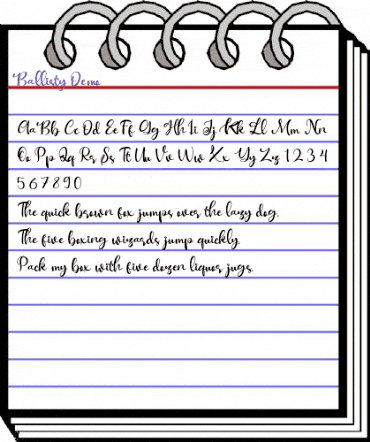 Ballisty Demo
Aa Bb Cc Dd Ee Ff Gg Hh Ii Jj Kk Ll Mm Nn
Oo Pp Qq Rr Ss Tt Uu Vv Ww Xx Yy Zz 1 2 3 4
5 6 7 8 9 0
The quick brown fox jumps over the lazy dog.
The five boxing wizards jump quickly.
Pack my box with five dozen liquor jugs.